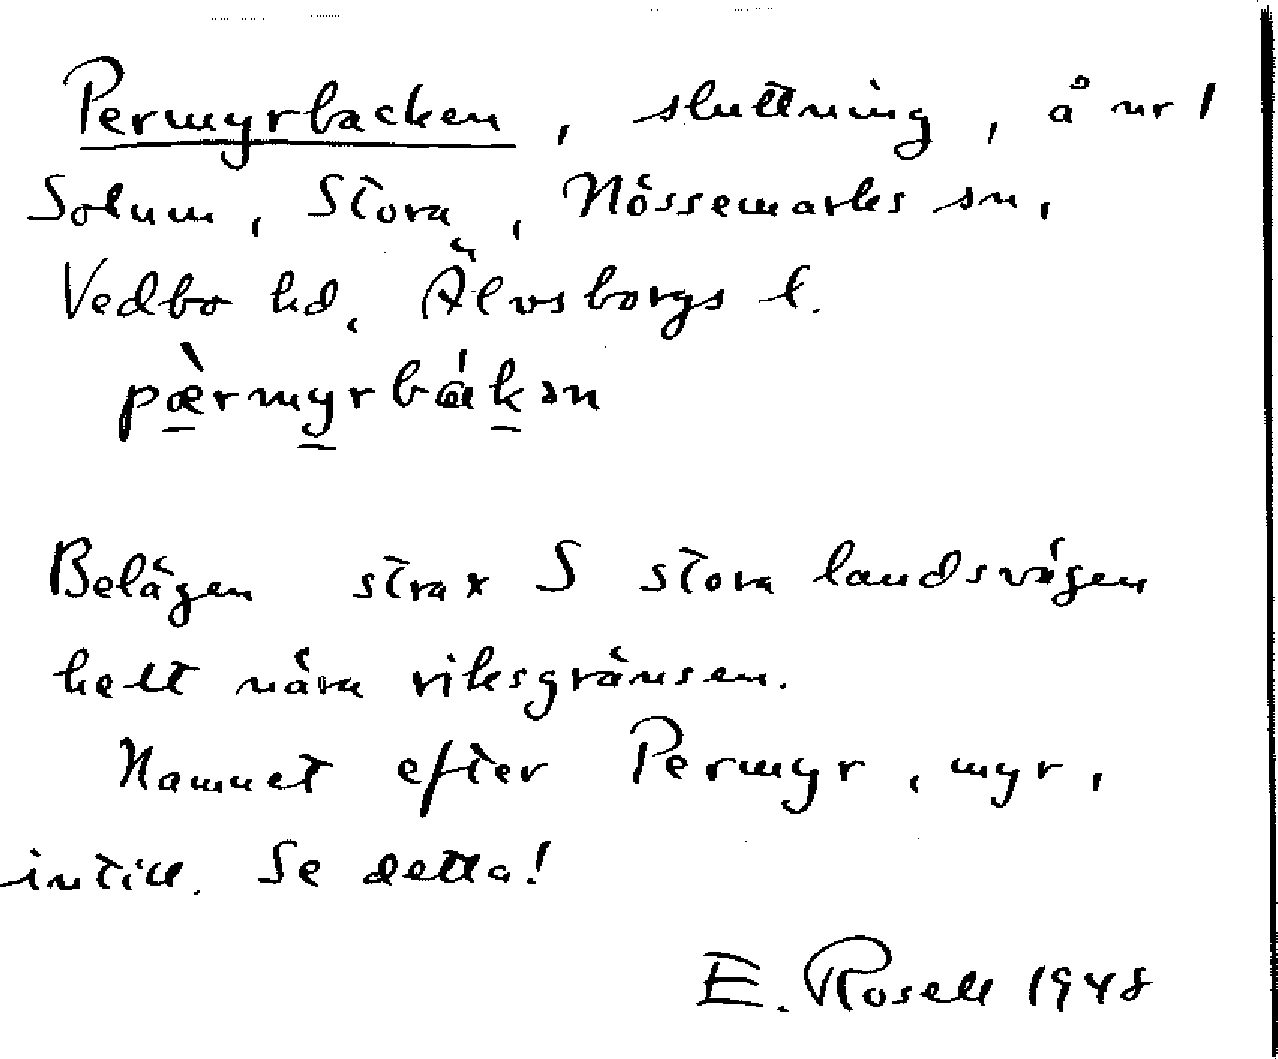 Permyrbacken, sluttning, å nr 1
Solum, Stora, Nössemarks sn,
Vedbo hd, Älvsborgs l.
pæ̀rmyrbákən
Belägen strax S stora landsvägen
helt nära riksgränsen.
Namnet efter Permyr, myr,
intill. Se detta!
E. Rosell 1948